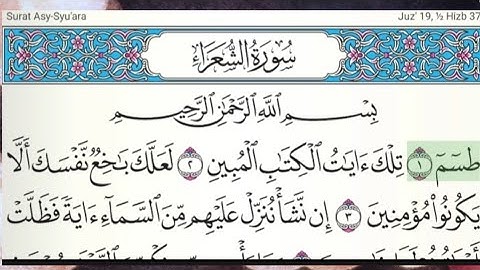 Surat Asy-Syu'ara Juz' 19, ½ Hizb 37
سُورَةُ الشُّعَرَاءِ
بِسْمِ اللَّهِ الرَّحْمَٰنِ الرَّحِيمِ
طسٓمٓ ١ تِلْكَ ءَايَٰتُ الْكِتَٰبِ الْمُبِينِ ٢ لَعَلَّكَ بَٰخِعٌ نَّفْسَكَ أَلَّا
يَكُونُوا۟ مُؤْمِنِينَ ٣ إِن نَّشَأْ نُنَزِّلْ عَلَيْهِم مِّنَ السَّمَآءِ ءَايَةً فَظَلَّتْ